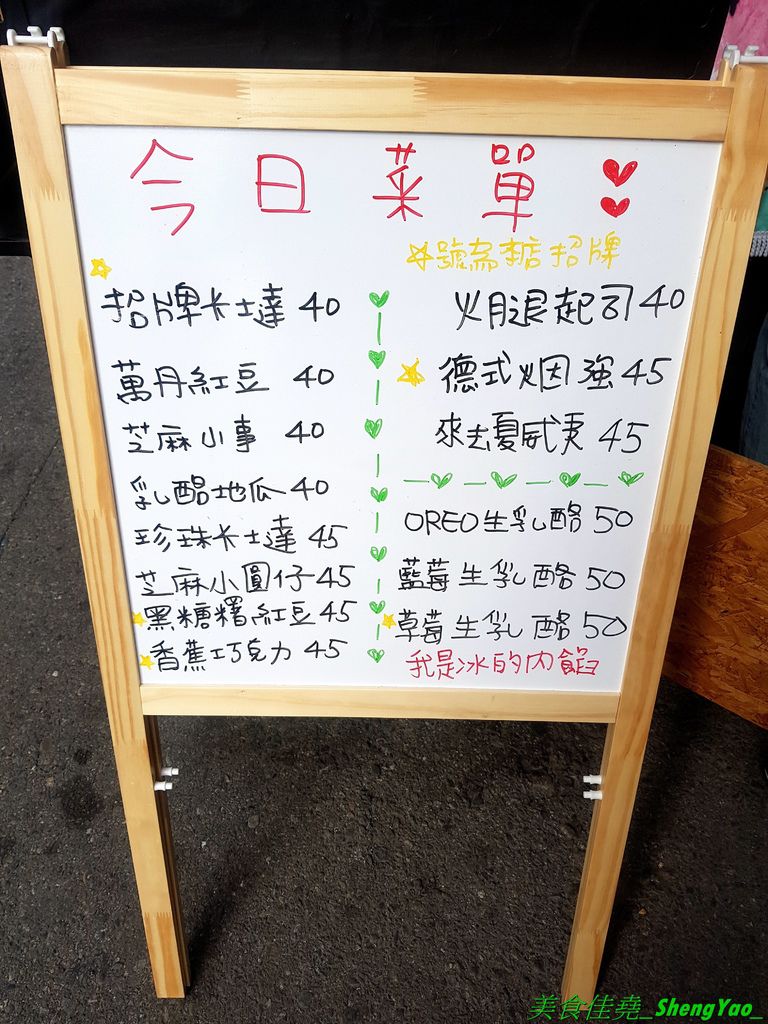 今日菜單
☆號為本店招牌
招牌卡士達 40
萬丹紅豆 40
芝麻小事 40
乳酪地瓜 40
珍珠卡士達 45
芝麻小圓仔 45
黑糖糬紅豆 45
香蕉巧克力 45
火腿起司 40
德式烟強 45
來去夏威夷 45
OREO生乳酪 50
藍莓生乳酪 50
草莓生乳酪 50
我是冰的內餡
美食佳堯_ShengYao_